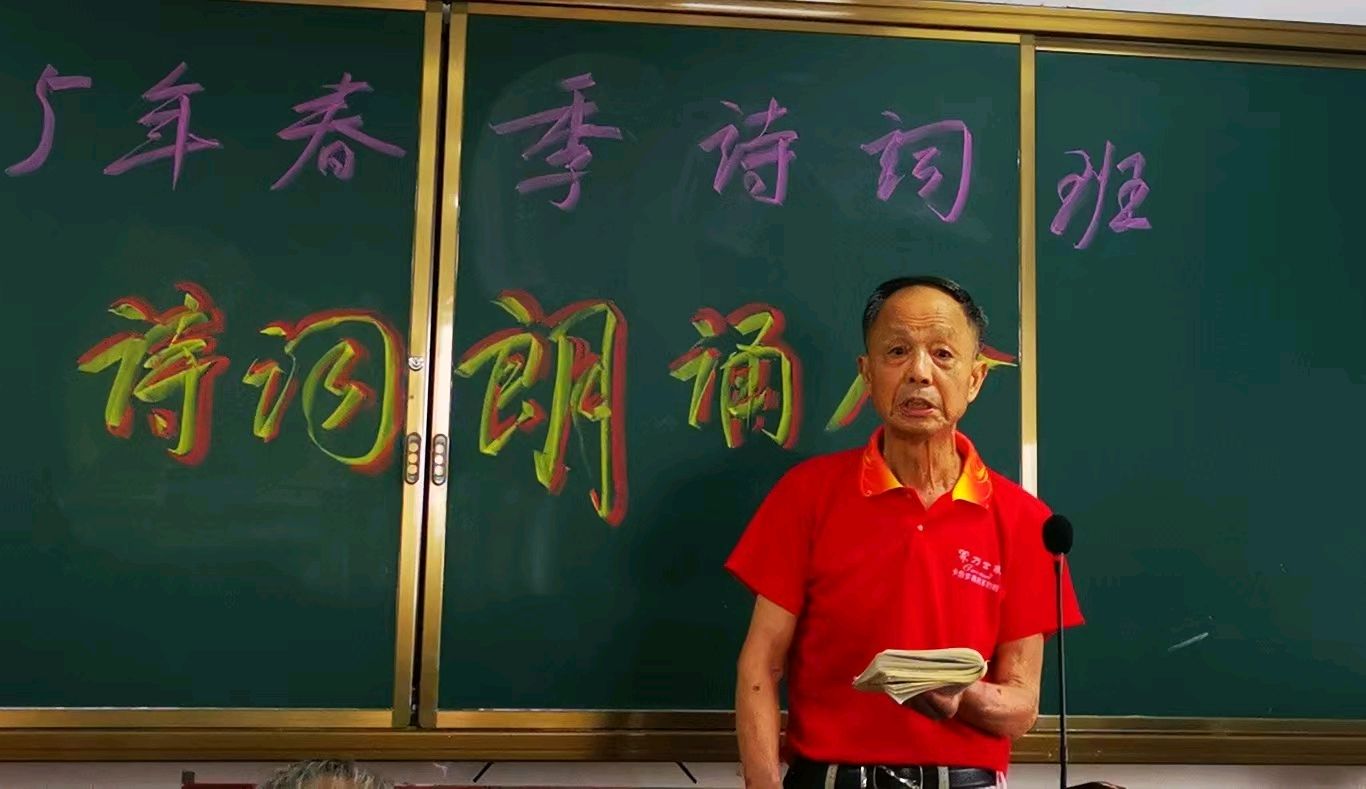 5年春季诗词班
诗词朗诵